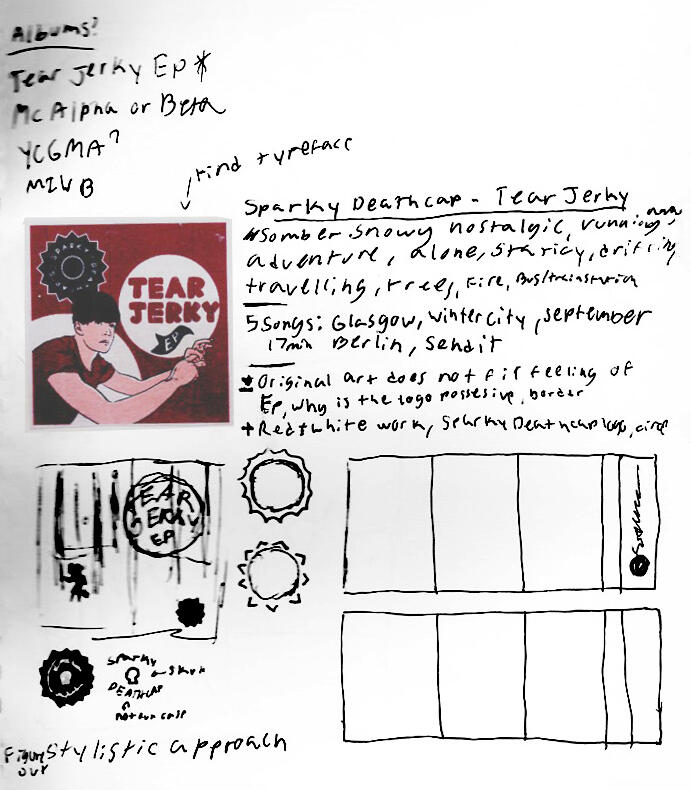 Albums?
Tear Jerky Ep *
Mc Alpha or Beta
YCGMA?
MIVB
Find typeface
Sparky Deathcap - Tear Jerky
Somber snowy nostalgic, running,
adventure, alone, staticy, drifting
travelling, trees, Fire, Bus/trainstation
5 Songs: Glasgow, Wintercity, September
17min Berlin, Sendit
Original art does not fit feeling of
Ep, why is the logo possesive, border
+ Red+white work, Sparky Deathcap logo, circle
SPARKY DEATHCAP
TEAR
JERKY
EP
TEAR
JERKY
EP
Sparky
DEATHCAP
not all caps
Figure
out
Stylistic approach